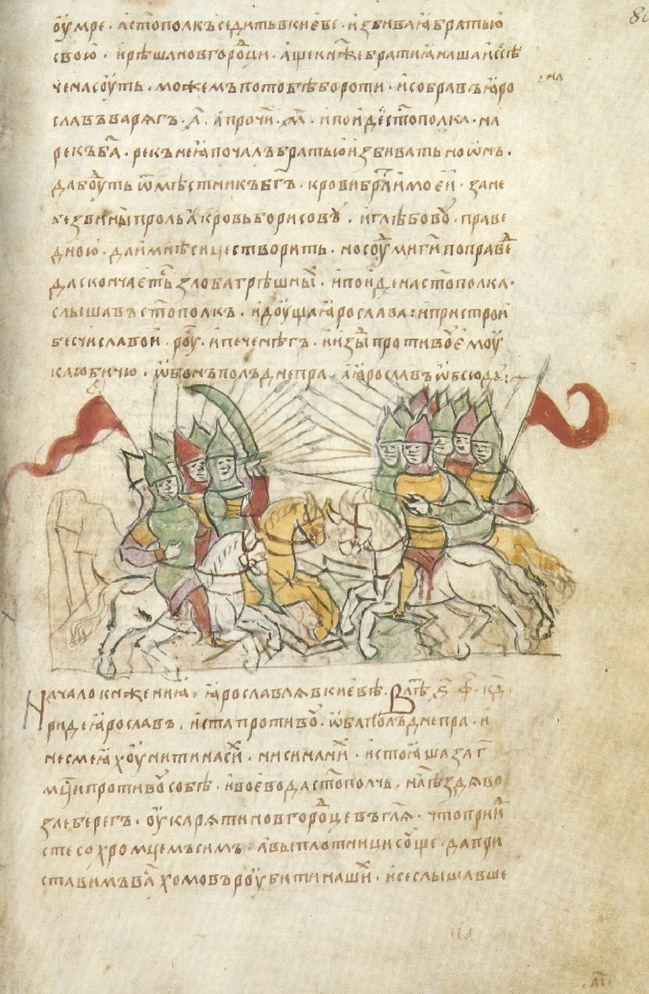 оумре · а стополкъ седить в киеве · избиваꙗ братью
свою · и рѣша новгородци · аще кнѧже братиꙗ наша исѣ
чена соуть · можемъ по тобѣ бороти · и собравъ ꙗро
славъ варѧгъ · ҂а҃ · а прочи · м҃ · и поиде на стополка · на
рекъ ба҃ · рекъ не ꙗ почалъ братью избивать но онъ ·
да боуть ѿмѣстникъ бг҃ъ · крови братиꙗ моеи · зане
безвины пролья кровь борисову · и глѣбову · праве
дною · да и мнѣ сице створить · но соуди ми ги по правде
да скончаетсѧ злоба грѣшныи · и поиде на стополка ·
слышавъ стополкъ · идоуща ꙗрослава : и пристрои
бесчисла вои · роуси · и печенѣгъ · и изыде противоу емоу
к любичю · ѡб онъ полъ днепра · а ꙗрославъ ѡбсюду :
на
начало кнѧжениꙗ · ꙗрославлѧ в киевѣ · В лѣто ҂ѕ · ф · кд ·
приде ꙗрославъ · и сташа противоу · ѡба полъ днепра · и
не смеꙗхоу ни ти на сихъ · ни си на нихъ · и стоꙗша за г
мцѣи противоу собѣ · и воевода стополчь · нача ѣздѧ во
зле берегъ · оукарѧти новгородце въ глѧ · что прии
сте со хромцемъ симъ · а вы плотници соуще · да при
ставимъ вы хомовъ роубити наши · и се слышавше